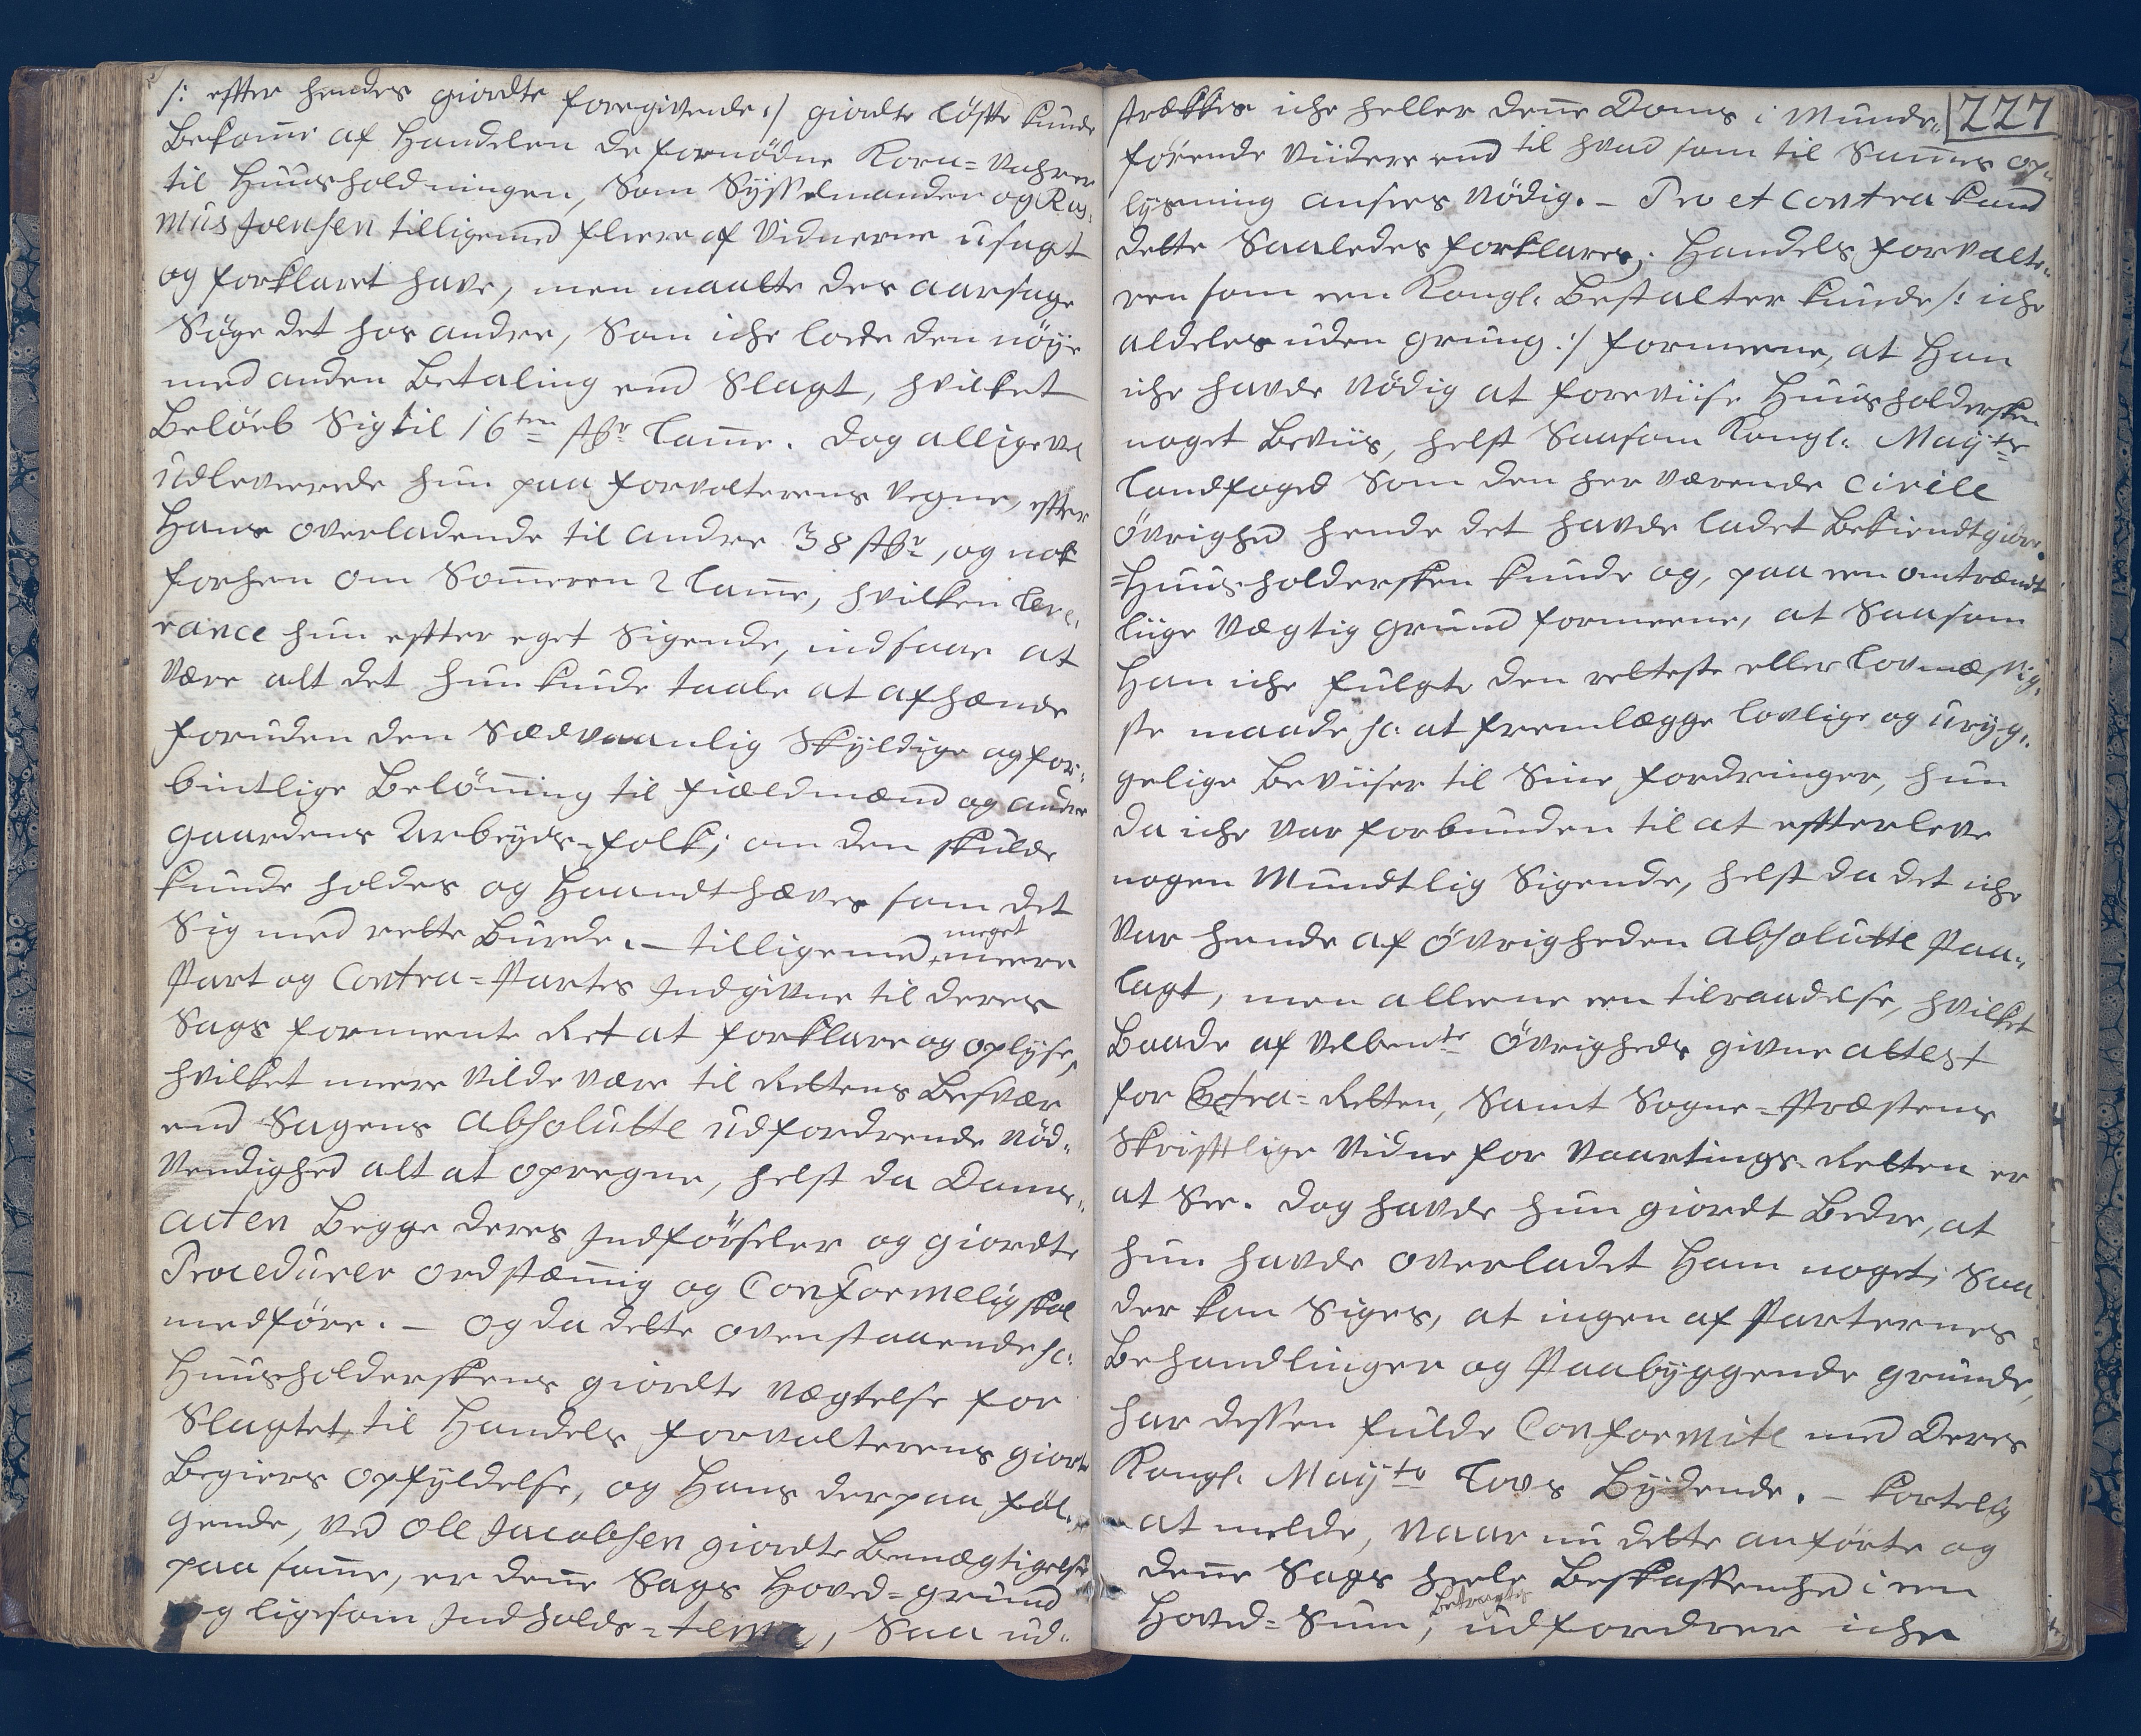 /: effter hendes giordte foregivende :/ giordte löfte kunde
Bekom̄e af Handelen de fornödne Korn=Vahrer
til Huusholdningen, Som Sysselmanden og Ras„
mus Joensen tilligemed fleere af Vidnerne usagt
og forklaret have, men maatte der aarsage
Söge det hos andre, Som iche lode den nöye
med anden Betaling end Slagt, hvilket
Belöeb Sig til 16ten st&r Lam̄e. Dog alligevel
udleverede hun paa forvalterens Vegne, effter
Hans overladende til andre 38 st&r, og nok
forhen om Som̄eren 2 Lam̄e, hvilken leve„
rance hun effter eget Sigende, indsaae at
være alt det hun kunde taale at afhænde
foruden den Sædvaanlig Skyldige og for„
bintlige Belön̄ing til fieldmænd og andre
gaardens Arbeyds=folk; om den skulde
kunde holdes og Haandthæves som det
Sig med rette Burde. – tilligemed meget meere
Part og Contra=Partes Indgivne til deres
Sags formeente Ret at forklare og oplyse,
hvilket meere vilde være til Rettens Besvær
end Sagens absolutte udfordrende nöd„
vendighed alt at opregne, helst da Doms„
acten Begge deres Indförseler og giordte
Procedurer ordstæm̄ig og Conformelig skal
medföre. – og da dette ovenstaaende sc:
Huusholderskens giordte vægtelse for
Slagtet til Handels forvalterens giorte
Begiers opfyldelse, og Hans derpaa föl„
gende, ved Ole Jacobsen giordte Bemægtigelse
paa sam̄e, er den̄e Sags Hoved=grund
og ligesom Indholds=tema, Saa ud„
227
strækkes iche heller den̄e Doms i Munde„
förende viidere end til hvad som til Sam̄es op„
lysning ansees nödig. – Pro et Contra kand
dette Saaledes forklares; Handels forvalte„
ren som een Kongl: Bestalter kunde /: iche
aldeles uden grung :/ formeene, at Han
iche havde nödig at foreviise Huusholdersken
noget Beviis, helst Saasom Kongl: Mayts
Landfoged Som den her værende Civile
övrighed hende det havde ladet Bekiendtgiöre.
=Huusholdersken kunde og, paa een omtrændt
liige vægtig grund formeene, at Saasom
Han iche fulgte den retteste eller lovmæssig„
ste maade sc: at fremlægge lovlige og uryg„
gelige Beviiser til Sine fordringer, hun
da iche var forbunden til at effterleve
nogen Mundtlig Sigende, helst da det iche
var hende af övrigheden absolutte Paa„
lagt, men alleene een tilraadelse, hvilket
Baade af velbente övrigheds givne attest
for Extra=Retten, Samt Sogne=Præstens
Skrifftlige vidne for Vaartings Retten er
at See. dog havde hun giordt Bedre, at
hun havde overladet Ham noget; Saa
der kan Siges, at ingen af Parternes
Behandlinger og Paabyggende grunde,
har dessen fulde Conformite med Deres
Kongl: Mayts Lovs Bydende. – kortelig
at melde, naar nu dette anförte og
den̄e Sags heele Beskaffenhed i een
Hoved=Sum, Betragtes udfordrer iche